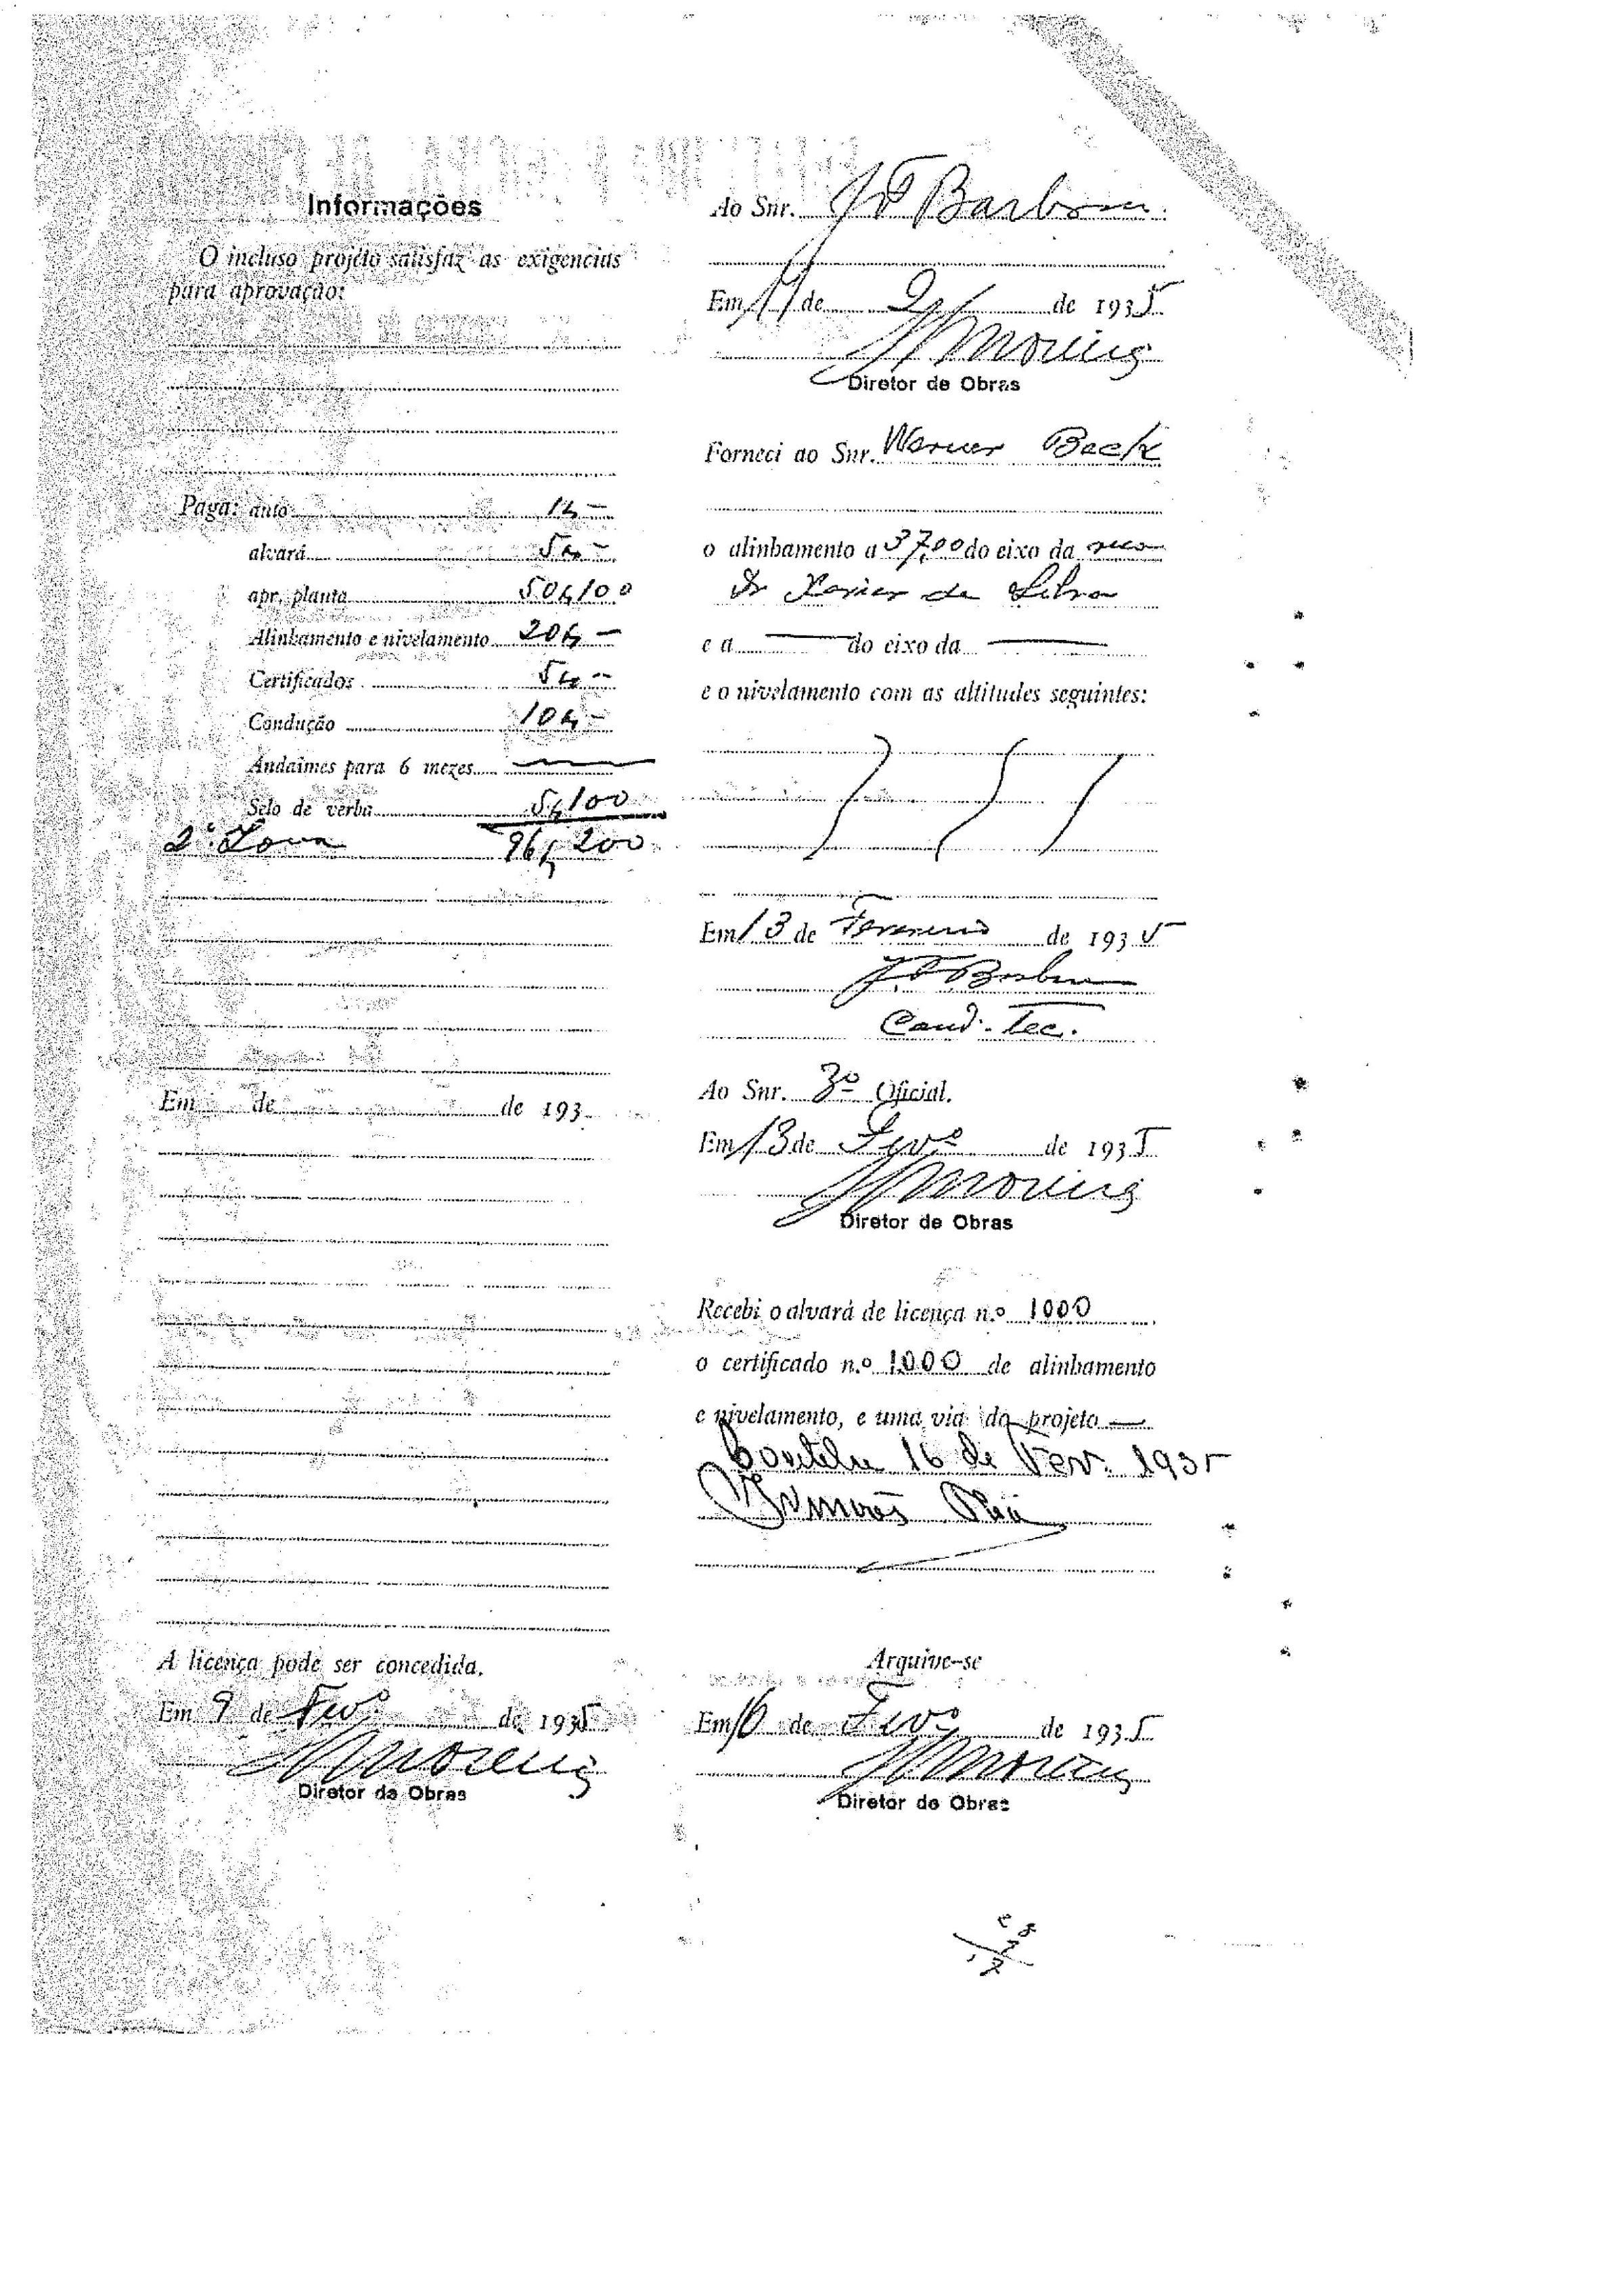 Informações
O incluso projéto satisfaz as exigencias
para aprovação:
Paga: auto 1$-
alvará 5$-
apr. planta 50$100
Alinhamento e nivelamento 20$-
Certificados 5$-
Condução 10$-
Andaimes para 6 mezes —
Selo de verba 5$100
2ª Zona 96$200
Em de de 193
A licença pode ser concedida.
Em 9 de Fevº de 1935
Moreira
Diretor de Obras
Ao Snr. Barbosa
Em 11 de 2 de 1935
Moreira
Diretor de Obras
Forneci ao Snr. Werner Beck
o alinhamento a 37,00 do eixo da rua
Dr Xavier da Silva
e a — do eixo da —
e o nivelamento com as altitudes seguintes:
Em 13 de Fevereiro de 1935
Barbosa
Cond. Tec.
Ao Snr. 3º Oficial.
Em 13 de Fevº de 1935
Moreira
Diretor de Obras
Recebi o alvará de licença n.º 1000
o certificado n.º 1000 de alinhamento
e nivelamento, e uma via do projeto —
16 de Fev. 1935
Arquive-se
Em 16 de Fevº de 1935
Moreira
Diretor de Obras